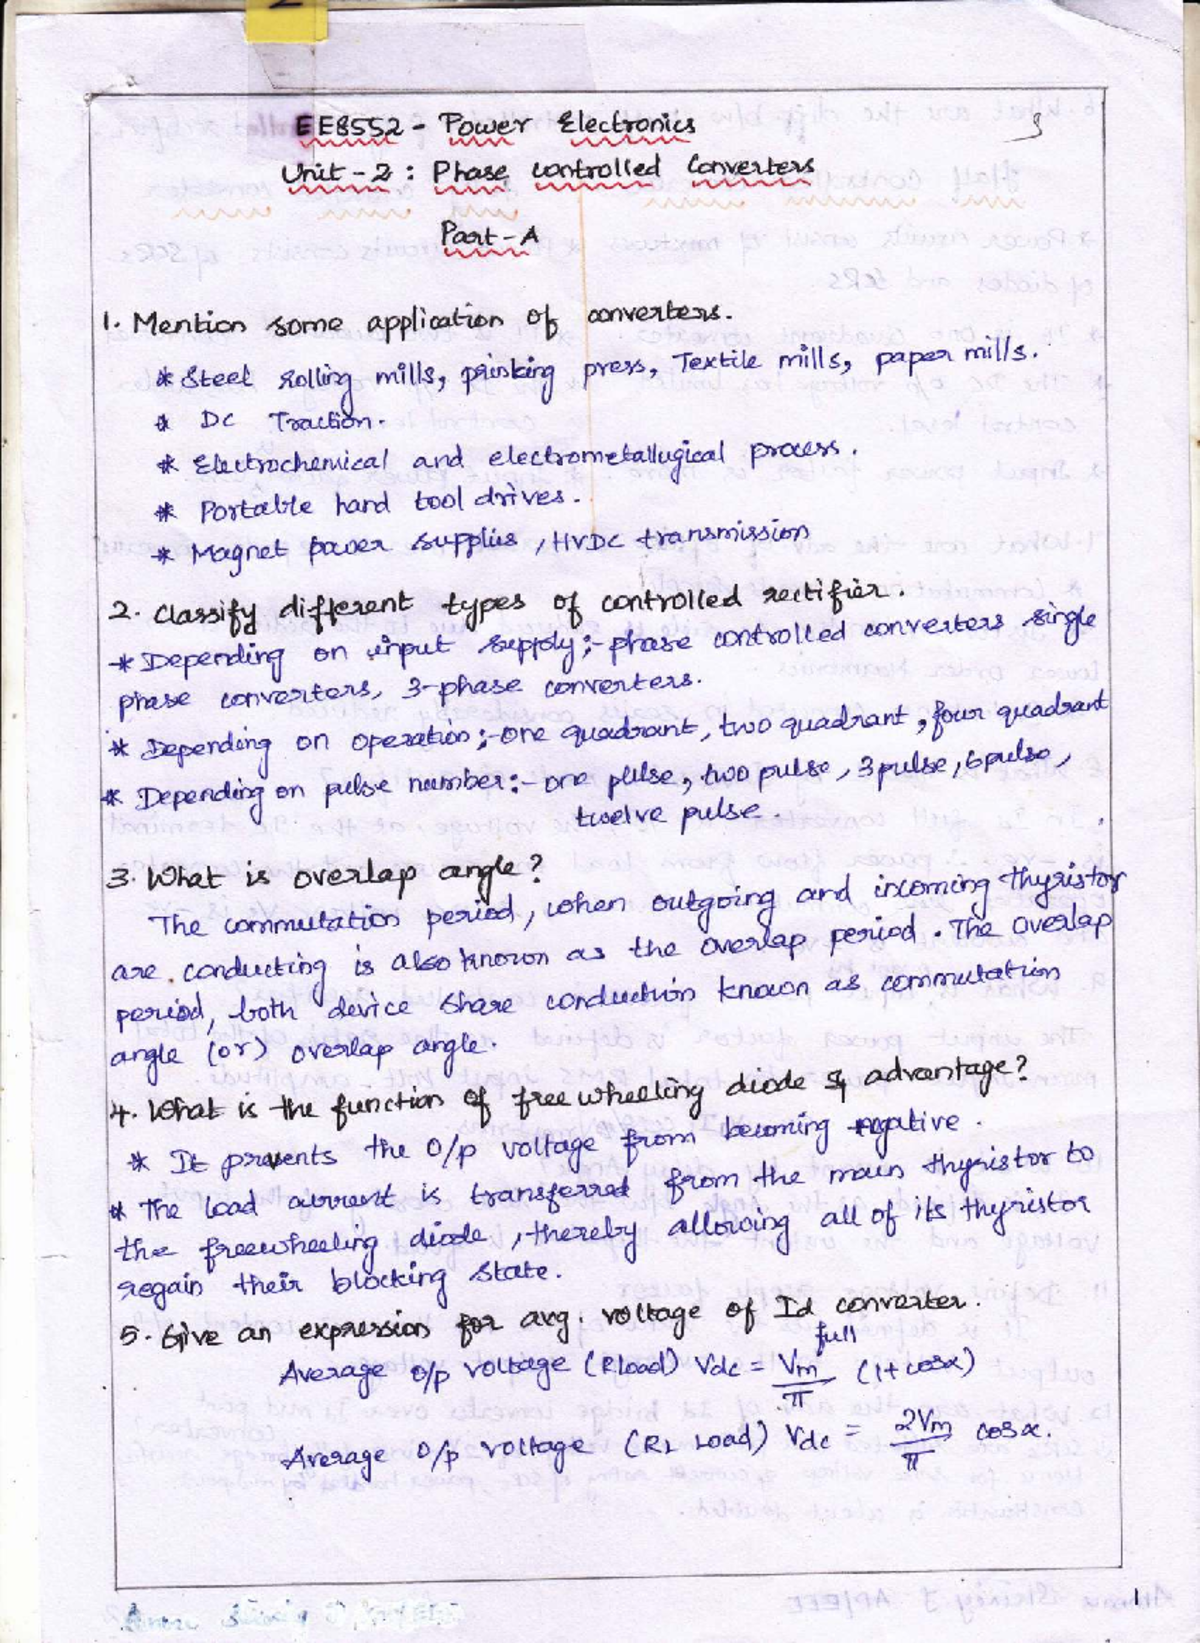 EE8552 - Power Electronics
3
Unit - 2 : Phase controlled Converters
Part - A
1. Mention some application of converters.
* Steel rolling mills, prinking press, Textile mills, paper mills.
* DC Traction.
* Electrochemical and electrometallugical process.
* Portable hand tool drives.
* Magnet power supplies, HVDC transmission
2. Classify different types of controlled rectifier.
* Depending on input supply;- phase controlled converters single
phase converters, 3-phase converters.
* Depending on operation;- one quadrant, two quadrant, four quadrant
* Depending on pulse number:- one pulse, two pulse, 3 pulse, 6 pulse,
twelve pulse.
3. What is overlap angle?
The commutation period, when outgoing and incoming thyristor
are conducting is also known as the overlap period. The overlap
period, both device share conduction known as commutation
angle (or) overlap angle.
4. What is the function of free wheeling diode & advantage?
* It prevents the O/p voltage from becoming negative.
* The load current is transferred from the main thyristor to
the freewheeling diode, thereby allowing all of its thyristor
regain their blocking state.
5. Give an expression for avg. voltage of 1d converter.
full
Average o/p voltage (R load) Vdc = Vm/π (1+cosα)
Average O/p voltage (RL Load) Vdc = 2Vm/π cosα.
1